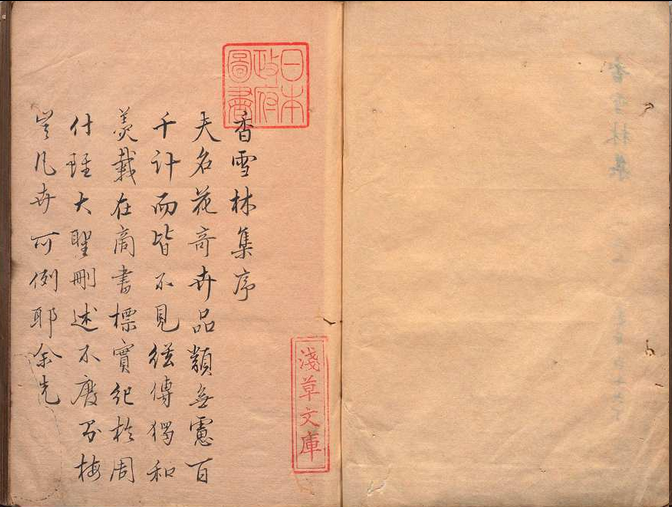 日本
政府
圖書
香雪林集序
夫名花奇卉品類無慮百
千計而皆不見經傳獨和
羹載在商書標實紀於周
什經大聖刪述不廢梅
豈凡卉可例耶余先
淺草文庫